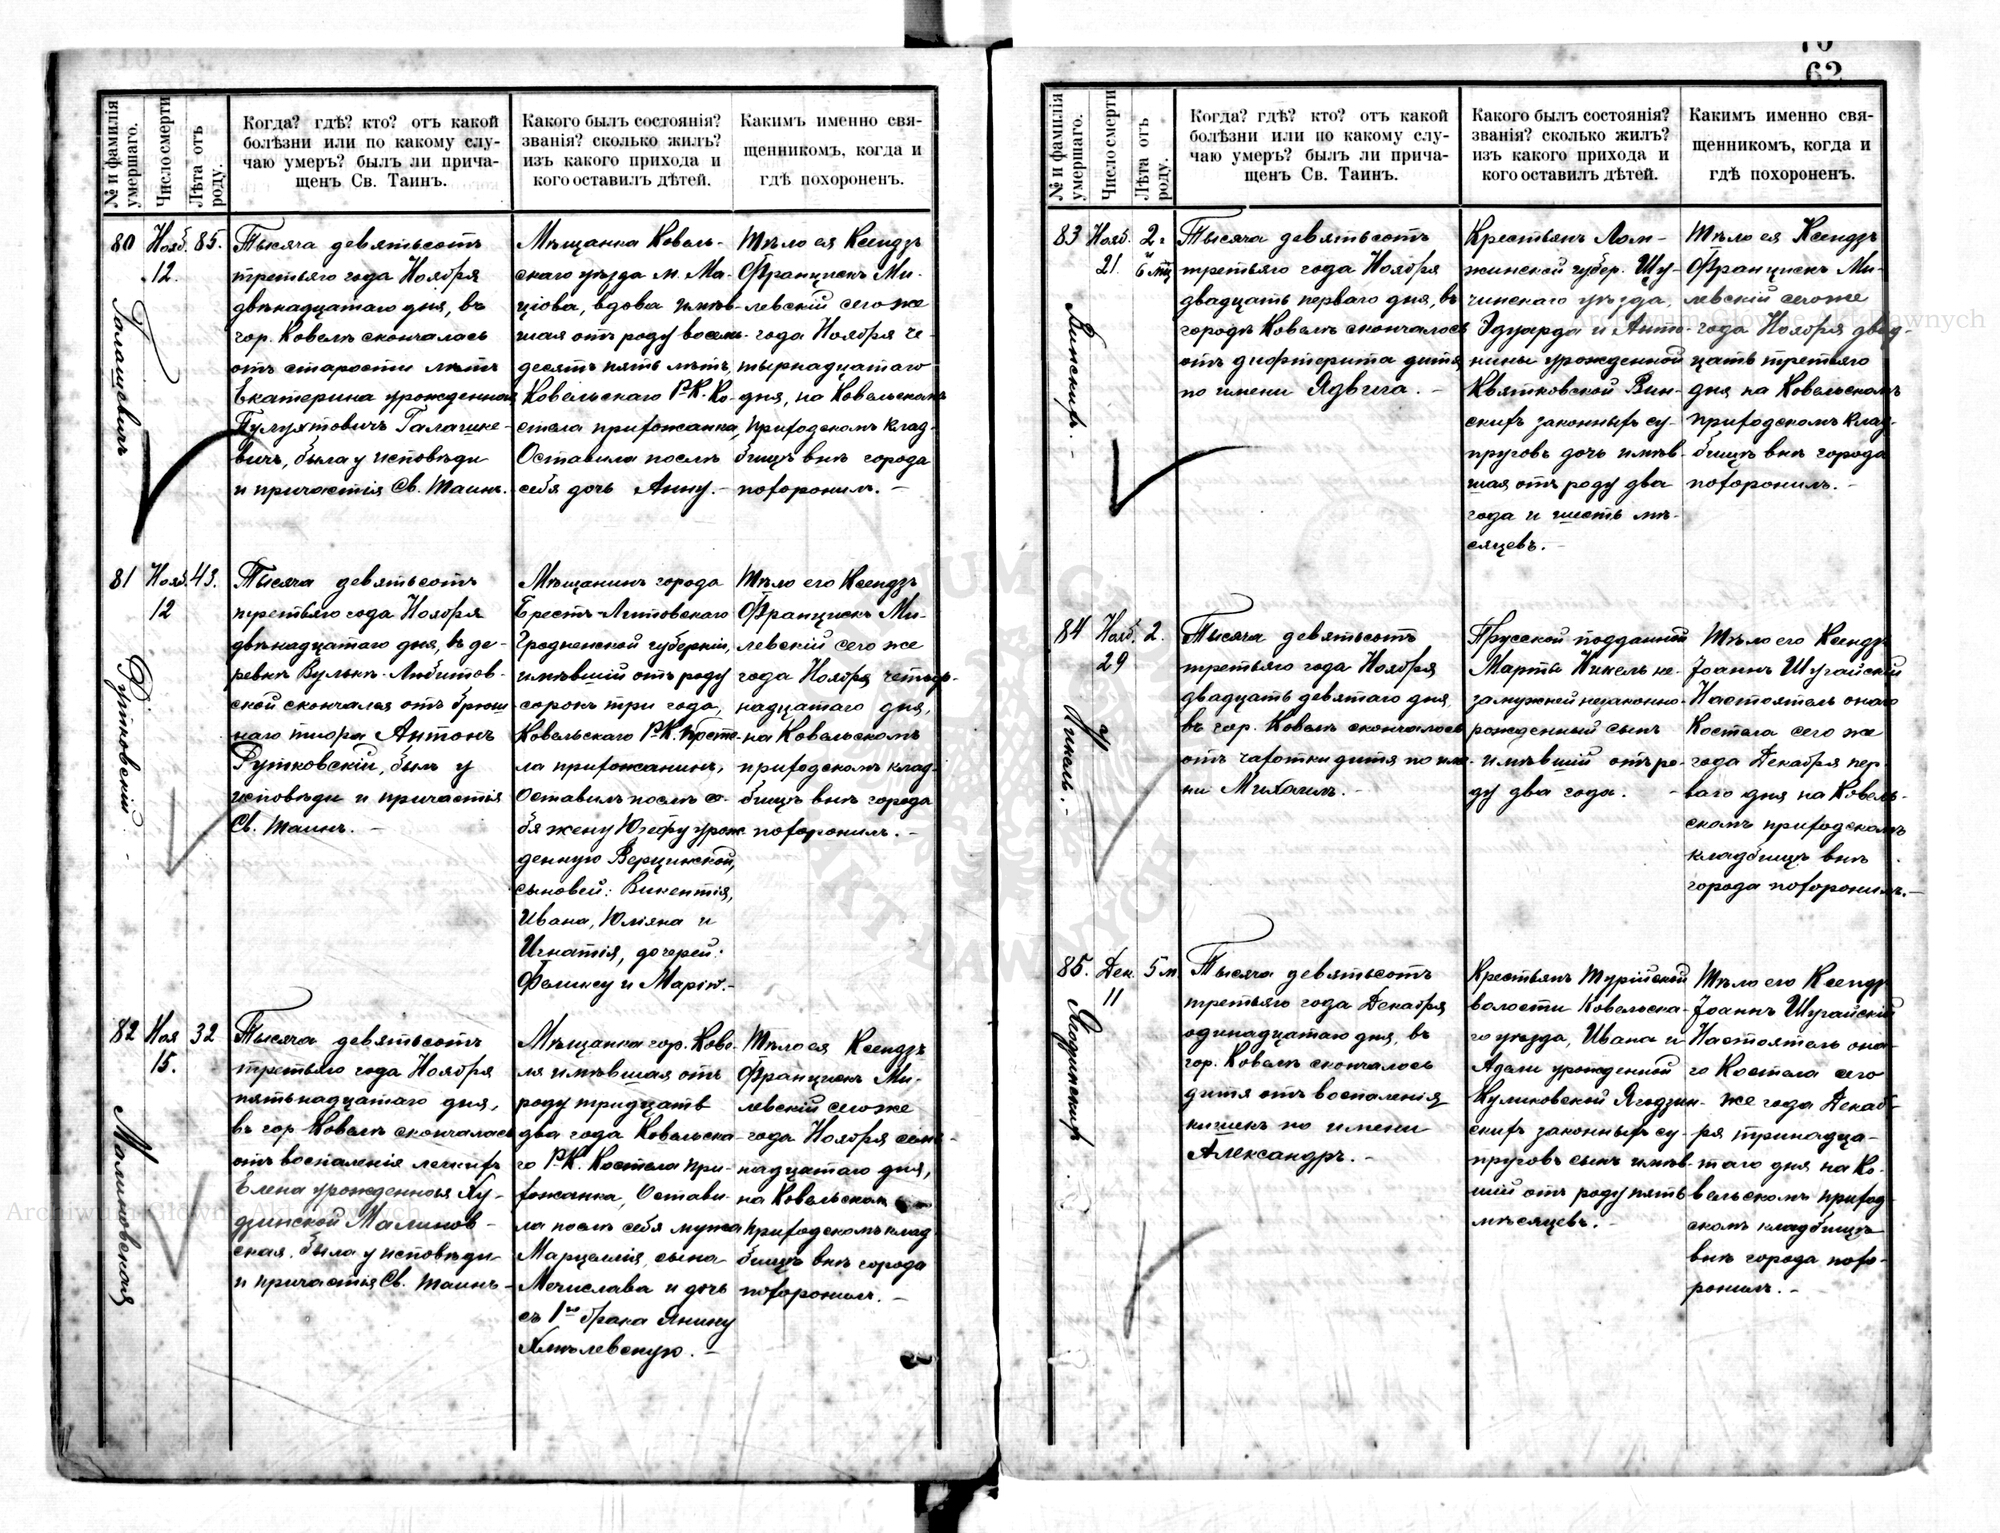 70
62
№ и фамилія умершаго.
Число смерти
Лѣта отъ роду.
Когда? гдѣ? кто? отъ какой
болѣзни или по какому слу-
чаю умеръ? былъ ли прича-
щенъ Св. Таинъ.
Какого былъ состоянія?
званія? сколько жилъ?
изъ какого прихода и
кого оставилъ дѣтей.
Какимъ именно свя-
щенникомъ, когда и
гдѣ похороненъ.
80
Галашевичъ
Нояб.
12.
85.
Тысяча девятьсотъ
третьяго года Ноября
двѣнадцатаго дня, въ
гор. Ковелѣ скончалась
отъ старости лѣтъ
Екатерина урожденная
Галашке-
вичъ, была у исповѣди
и причастія Св. Таинъ.
Мѣщанка Ковель-
скаго уѣзда м. Ма-
ціова, вдова имѣв-
шая отъ роду восемь-
десятъ пять лѣтъ,
Ковельскаго Р.К. Ко-
стела прихожанка,
Оставила послѣ
себя дочь Анну. –
Тѣло ея Ксендзъ
Францискъ Ми-
левскій сего же
года Ноября че-
тырнадцатаго
дня, на Ковельскомъ
приходскомъ клад-
бищѣ внѣ города
похоронилъ. –
81
Рутковскій. –
Нояб.
12
43.
Тысяча девятьсотъ
третьяго года Ноября
двѣнадцатаго дня, въ де-
ревнѣ Вулькѣ-Любитов-
ской скончался отъ брюш-
наго тифа Антонъ
Рутковскій, былъ у
исповѣди и причастія
Св. Таинъ. –
Мѣщанинъ города
Брестъ-Литовскаго
Гродненской губерніи,
имѣвшій отъ роду
сорокъ три года,
Ковельскаго Р.К. Косте-
ла прихожанинъ,
Оставилъ послѣ се-
бя жену Юзефу урож-
денную Верцинской,
сыновей: Викентія,
Ивана, Юліяна и
Игнатія, дочерей:
Феликсу и Марію. –
Тѣло его Ксендзъ
Францискъ Ми-
левскій сего же
года Ноября четыр-
надцатаго дня,
на Ковельскомъ
приходскомъ клад-
бищѣ внѣ города
похоронилъ. –
82
Малиновская
Ноя
15.
32
Тысяча девятьсотъ
третьяго года Ноября
пятьнадцатаго дня,
въ гор. Ковелѣ скончалась
отъ воспаленія легкихъ
Елена урожденная Ху-
дзинской Малинов-
ская. была у исповѣди
и причастія Св. Таинъ –
Мѣщанка гор. Кове-
ля имѣвшая отъ
роду тридцать
два года Ковельска-
го Р.К. Костела при-
хожанка, Остави-
ла послѣ себя мужа
Марцеллія, сына
Мечислава и дочь
съ 1го брака Янину
Хмѣлевскую. –
Тѣло ея Ксендзъ
Францискъ Ми-
левскій сего же
года Ноября семь-
надцатаго дня,
на Ковельском
приходскомъ клад-
бищѣ внѣ города
похоронилъ. –
№ и фамилія умершаго.
Число смерти
Лѣта отъ роду.
Когда? гдѣ? кто? отъ какой
болѣзни или по какому слу-
чаю умеръ? былъ ли прича-
щенъ Св. Таинъ.
Какого былъ состоянія?
званія? сколько жилъ?
изъ какого прихода и
кого оставилъ дѣтей.
Какимъ именно свя-
щенникомъ, когда и
гдѣ похороненъ.
83
Винскихъ. –
Нояб.
21.
2 г
6 мц
Тысяча девятьсотъ
третьяго года Ноября
двадцать перваго дня, въ
городѣ Ковелѣ скончалось
отъ дифтерита дитя
по имени Ядвига. –
Крестьянъ Лом-
жинской губер. Щу-
чинскаго уѣзда,
Эдуарда и Анто-
нины урожденной
Квятковской Вин-
скихъ законныхъ су-
пруговъ дочь имѣв-
шая отъ роду два
года и шесть мѣ-
сяцевъ. –
Тѣло ея Ксендзъ
Францискъ Ми-
левскій сего же
года Ноября двад-
цать третьяго
дня на Ковельскомъ
приходскомъ клад-
бищѣ внѣ города
похоронилъ. –
84
Никель. –
Нояб.
29
2.
Тысяча девятьсотъ
третьяго года Ноября
двадцать девятаго дня,
въ гор. Ковелѣ скончалось
отъ чахотки дитя по име-
ни Михаилъ. –
Прусской подданной
Марты Никель не-
замужней незаконно-
рожденный сынъ
имѣвшій отъ ро-
ду два года. –
Тѣло его Ксендзъ
Іоаннъ Шугайскій
Настоятель онаго
Костела сего же
года Декабря пер-
ваго дня на Ковель-
скомъ приходскомъ
кладбищѣ внѣ
города похоронилъ. –
85.
Ягодзинскихъ
Дек.
11
5 м.
Тысяча девятьсотъ
третьяго года Декабря
одинадцатаго дня, въ
гор. Ковелѣ скончалось
дитя отъ воспаленія
кишекъ по имени
Александръ. –
Крестьянъ Турійской
волости Ковельска-
го уѣзда, Ивана и
Адели урожденной
Куликовской Ягодзин-
скихъ законныхъ су-
пруговъ сынъ имѣв-
шій отъ роду пять
мѣсяцевъ. –
Тѣло его Ксендзъ
Іоаннъ Шугайскій
Настоятель она-
го Костела сего
же года Декаб-
ря тринадца-
таго дня на Ко-
вельскомъ приход-
скомъ кладбищѣ
внѣ города похо-
ронилъ. –
Archiwum Główne Akt Dawnych
Archiwum Główne Akt Dawnych